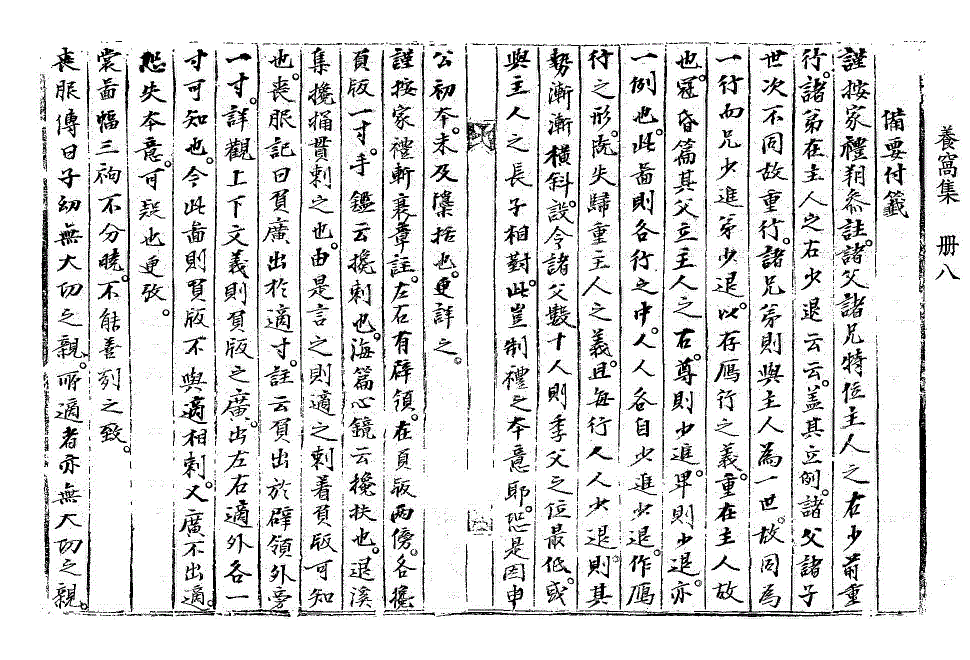 養窩集 冊八
備要付籤
謹按家禮朔叅註諸父諸兄特位主人之右少前重
行諸弟在主人之右少退云云盖其立例諸父諸子
世次不同故重行諸兄弟則與主人為一世故同為
一行而兄少進弟少退以存鴈行之義重在主人故
也冠昏篇其父立主人之右尊則少進卑則少退亦
一例也此啚則各行之中人人各自少進少退作鴈
行之形旣失歸重主人之義且每行人人少退則其
勢漸漸橫斜設令諸父數十人則季父之位最低或
與主人之長子相對此豈制禮之本意耶恐是因申
公初本未及檃括也更詳之
謹按家禮斬衰章註左右有辟領在負版兩傍各攙
負版一寸手鑑云攙刺也海篇心鏡云攙扶也退溪
集攙揷貫刺之也由是言之則適之刺着負版可知
也喪服記曰負廣出於適寸註云負出於辟領外旁
一寸詳觀上下文義則負版之廣出左右適外各一
寸可知也今此啚則負版不與適相刺又廣不出適
恐失本意可疑也更攷
裳啚幅三袧不分曉不能善刻之致
喪服傳曰子幼無大功之親所適者亦無大功之親